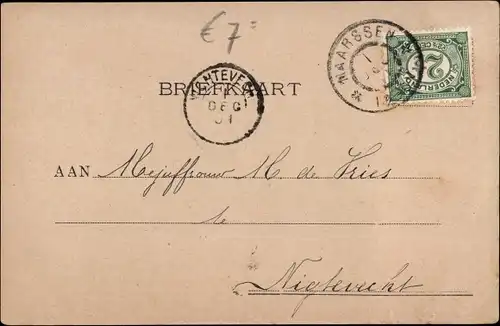 € 7=
MAARSSEN
NEDERLAND
2½
BRIEFKAART
DEC
01
AAN Mejuffrouw M. de Vries
te
Nigtevecht